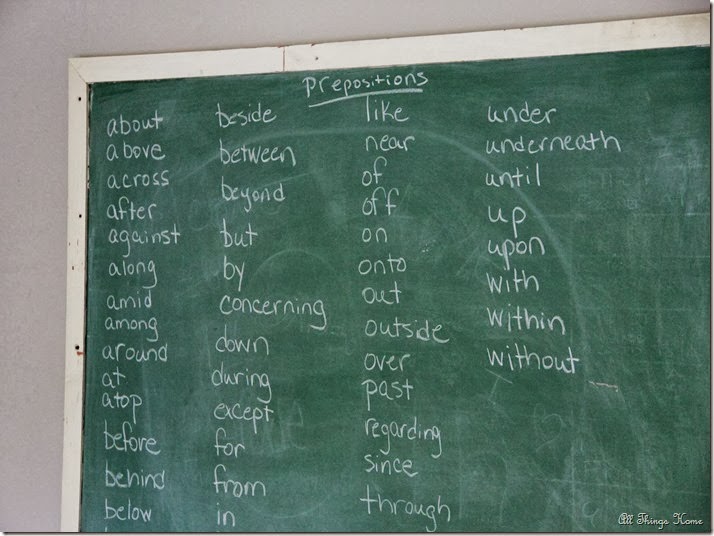 Prepositions
about
above
across
after
against
along
amid
among
around
at
atop
before
behind
below
beside
between
beyond
but
by
concerning
down
during
except
for
from
in
like
near
of
off
on
onto
out
outside
over
past
regarding
since
through
under
underneath
until
up
upon
with
within
without
All Things Home